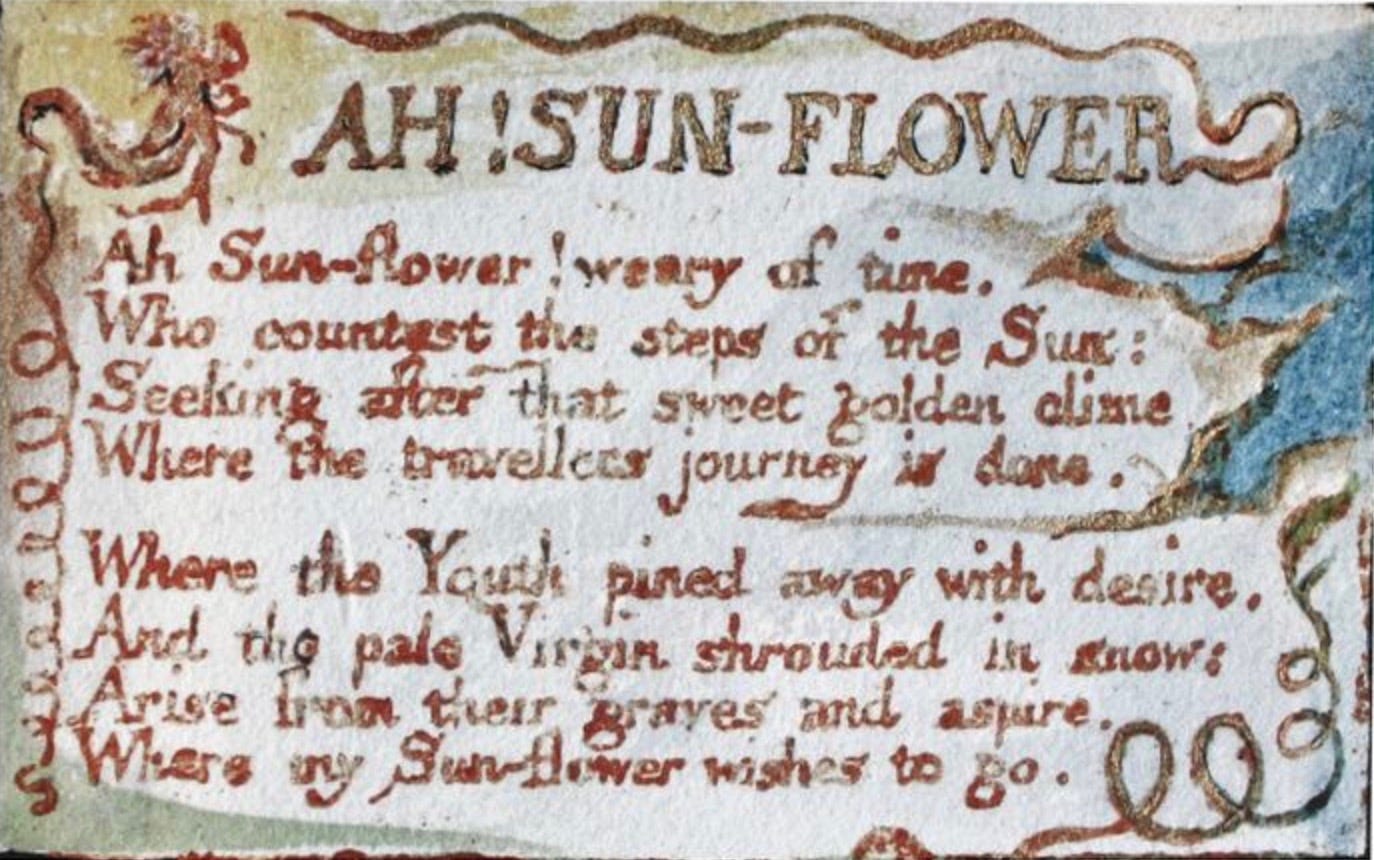 AH! SUN-FLOWER
Ah Sun-flower! weary of time.
Who countest the steps of the Sun:
Seeking after that sweet golden clime
Where the travellers journey is done.
Where the Youth pined away with desire,
And the pale Virgin shrouded in snow:
Arise from their graves and aspire.
Where my Sun-flower wishes to go.